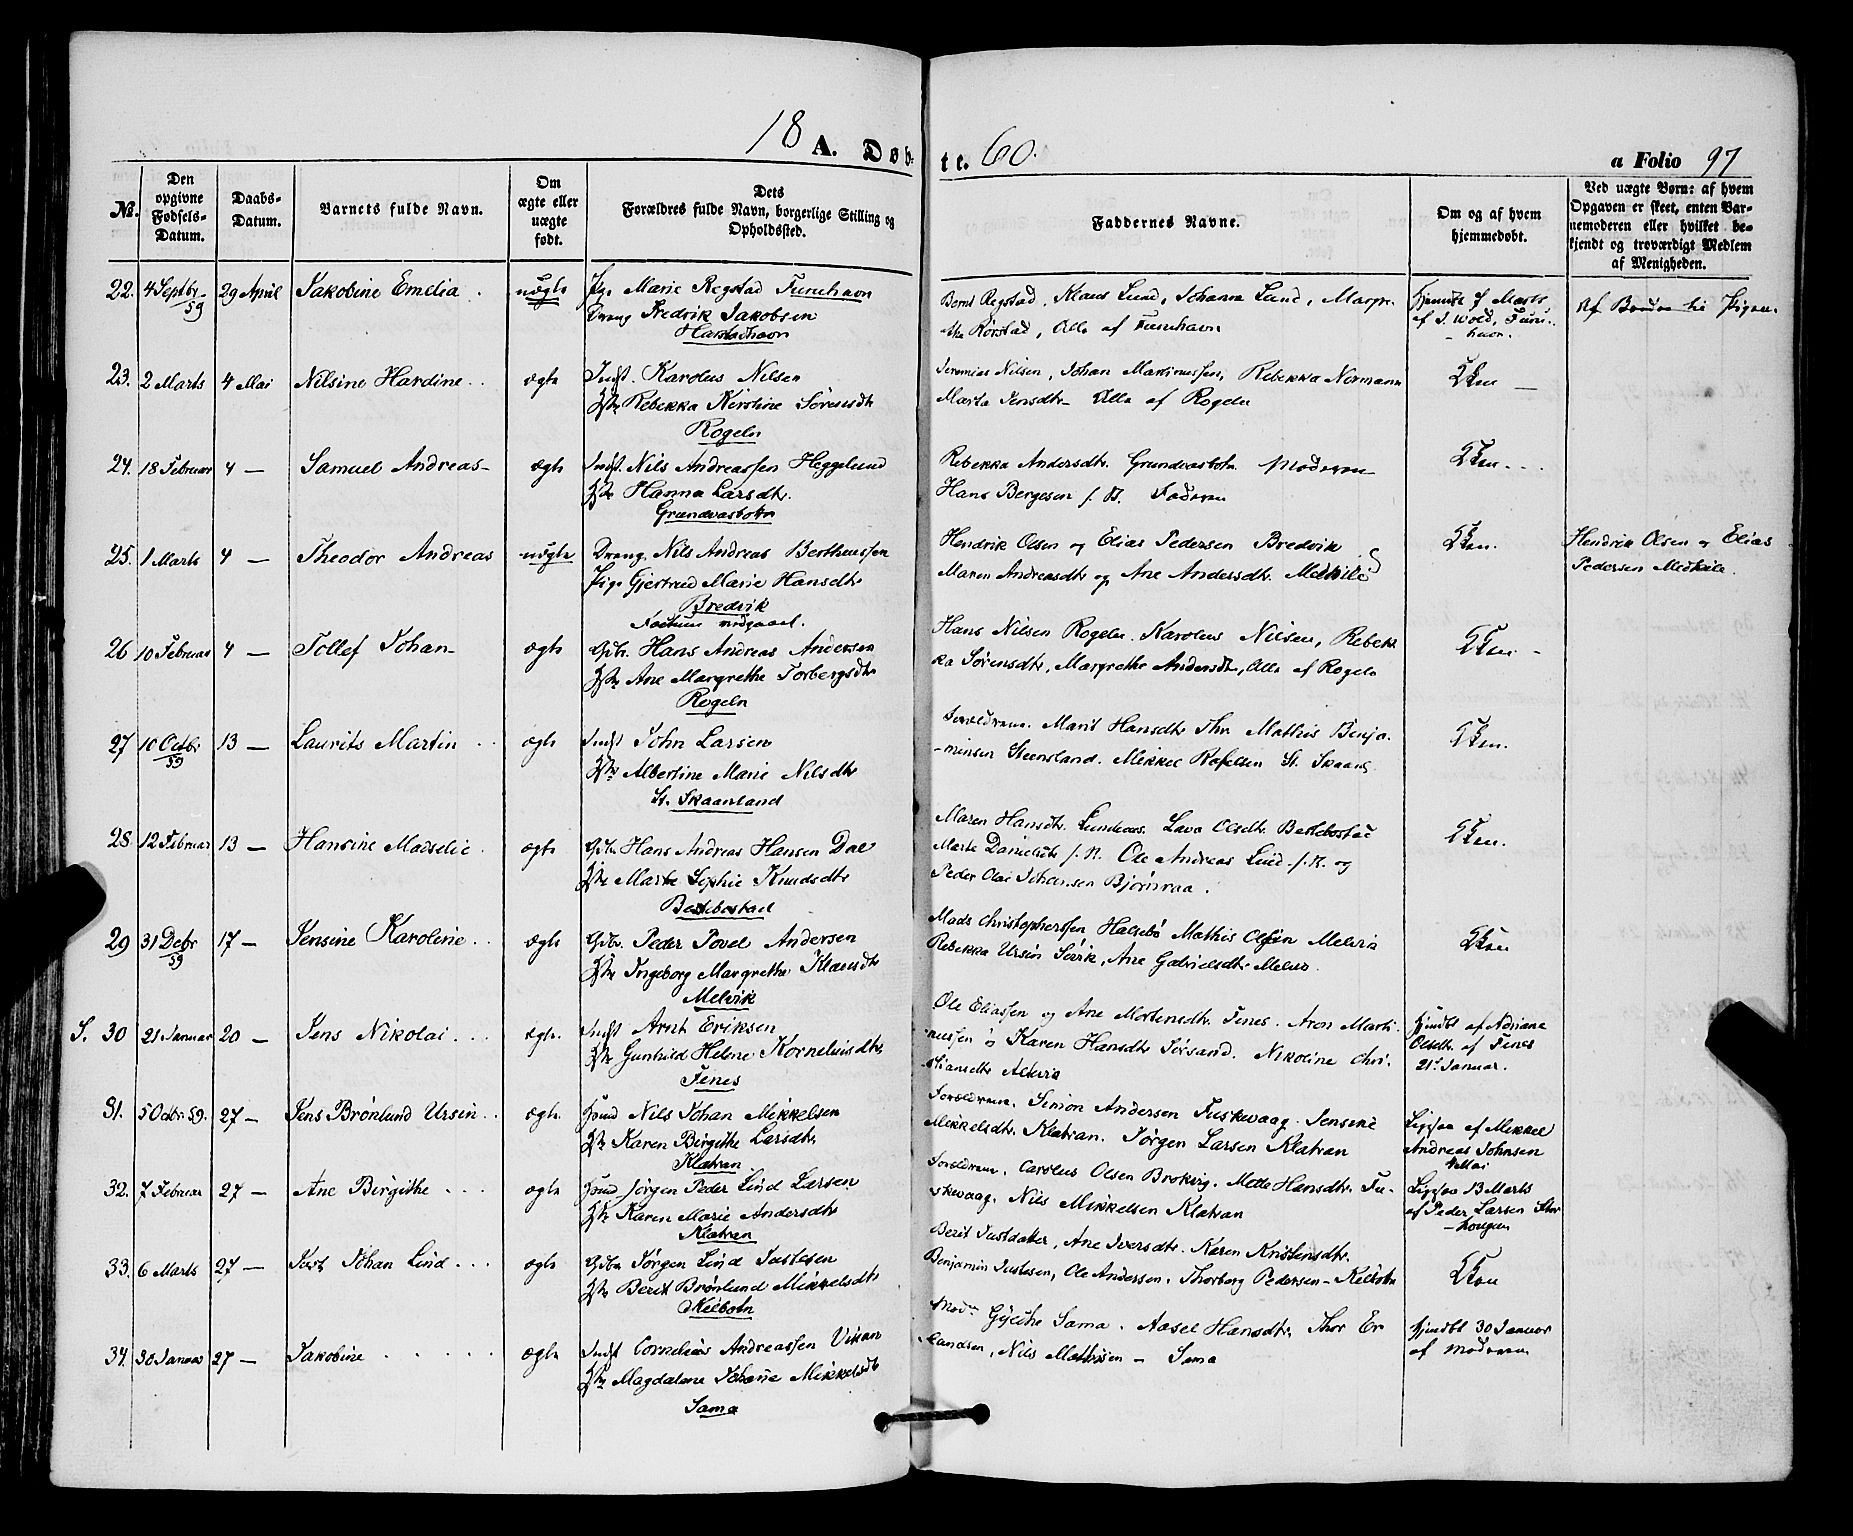 18 A. Døb-
te. 60.
a Folio 97
No.
Den opgivne Fødsels-Datum.
Daabs-Datum.
Barnets fulde Navn.
Om ægte eller uægte født.
Dets Forældres fulde Navn, borgerlige Stilling og Opholdssted.
Faddernes Navne.
Om og af hvem hjemmedøbt.
Ved uægte Børn: af hvem Opgaven er skeet, enten Barnemoderen eller hvilket bekjendt og troværdigt Medlem af Menigheden.
22. 4 Septbr 59 29 April Jakobine Emelia uægte Pig. Marie Regstad Furuhavn
Dreng Fredrik Jakobsen
Harstadhavn
Bernt Regstad, Klaus Lund, Johanna Lund, Margre-
the Rørstad, Alle af Furuhavn
af J. Wold, Furu-
havn.
23. 2 Marts 4 Mai Nilsine Hardine ægte Indst. Karolus Nilsen
Rebekka Kirstine Sørensdtr
Rogeln
Jeremias Nilsen, Johan Martinussen, Rebekka Normann
Marta Jensdtr Alle af Rogeln
24. 18 Februar 4 — Samuel Andreas ægte Indst. Nils Andreassen Heggelund
Hanna Larsdtr.
Grundvasbotn
Rebekka Andersdtr. Grundvasbotn Moderen
Hans Bergesen s. St. Faderen
25. 1 Marts 4 — Theodor Andreas uægte Dreng Nils Andreas Bertheussen
Pige Gjertrud Marie Hansdtr
Bredvik
Hendrik Olsen og Elias Pedersen Bredvik
Maren Andreasdtr og Ane Andersdtr. Medkile
Hendrik Olsen og Elias
Pedersen Medkile.
26 10 Februar 4 — Tollef Johan ægte Gdbr. Hans Andreas Andersen
Ane Margrethe Torbergsdtr
Rogeln
Hans Nilsen Rogeln. Karolus Nilsen, Rebek-
ka Sørensdtr, Margrethe Andersdtr, Alle af Rogeln
27 10 Octbr 59 13 — Laurits Martin ægte Indst John Larsen
Albertine Marie Nilsdtr
St. Skaanland
Forældrene. Marit Hansdtr Thr Mathis Benja-
minsen Steensland. Mikkel Rafelsen St. Skaanl.
28 12 Februar 13 — Hansine Marselie ægte Gdbr Hans Andreas Hansen Dal
Marte Sophie Knudsdtr
Bessebostad
Maren Hansdtr. Lundenes. Lava Olsdtr. Bessebostad
Marte Danielsdtr s. St. Ole Andreas Lind s. St. og
Peder Olai Johansen Bjørnraa.
29 31 Decbr 59 17 — Jensine Karoline ægte Gdbr. Peder Povel Andersen
Ingeborg Margrethe Klausdtr
Melvik
Mads Christophersen Halsebø Mathis Olsen Melvik
Rebekka Ursin Sørvik, Ane Gabrielsdtr Melvik.
S. 30 21 Januar 20 — Jens Nikolai ægte. Indst Arnt Eriksen
Gunhild Helene Korneliusdtr
Fenes
Ole Eliassen og Ane Mortensdtr. Fenes. Aron Marti-
nussen o Karen Hansdtr Sørsand. Nikoline Chri-
stiansdtr Alkevik
Hjmdbt af Adriane
Olsdtr. af Fenes
21de Januar.
31. 5 Octbr 59. 27 — Jens Brønlund Ursin ægte. Hsmd Nils Johan Mikkelsen
Karen Birgithe Larsdtr
Klatran
Forældrene. Simon Andersen Fuskevaag. Jensine
Mikkelsdtr. Klatran. Jørgen Larsen Klatran
Ligesaa af Mikkel
Andreas Johnsen
32. 7 Februar 27 — Ane Birgithe ægte Hsmd Jørgen Peder Lind Larsen
Karen Marie Andersdtr
Klatran
Forældrene, Carolus Olsen Brokvig, Mette Hansdtr. Fu-
skevaag, Nils Mikkelsen Klatran
Ligesaa 13 Marts
af Peder Larsen
33. 6 Marts 27 — Just Johan Lind ægte Gdbr Jørgen Lind Justesen
Berit Brønlund Mikkelsdtr
Kilbotn
Berit Justdatter, Ane Iversdtr. Karen Kristensdtr.
Benjamin Justesen, Ole Andersen, Thorberg Pedersen – Kilbotn
34. 30 Januar 27 — Jakobine ægte Indst Cornelius Andreassen Vikan
Magdalene Johanne Mikkelsdtr
Sama
Mod. Gjertine Sama. Aasel Hansdtr, Thor Er-
landsen, Nils Mathisen – Sama
Hjmdbt 30 Januar
af Moderen